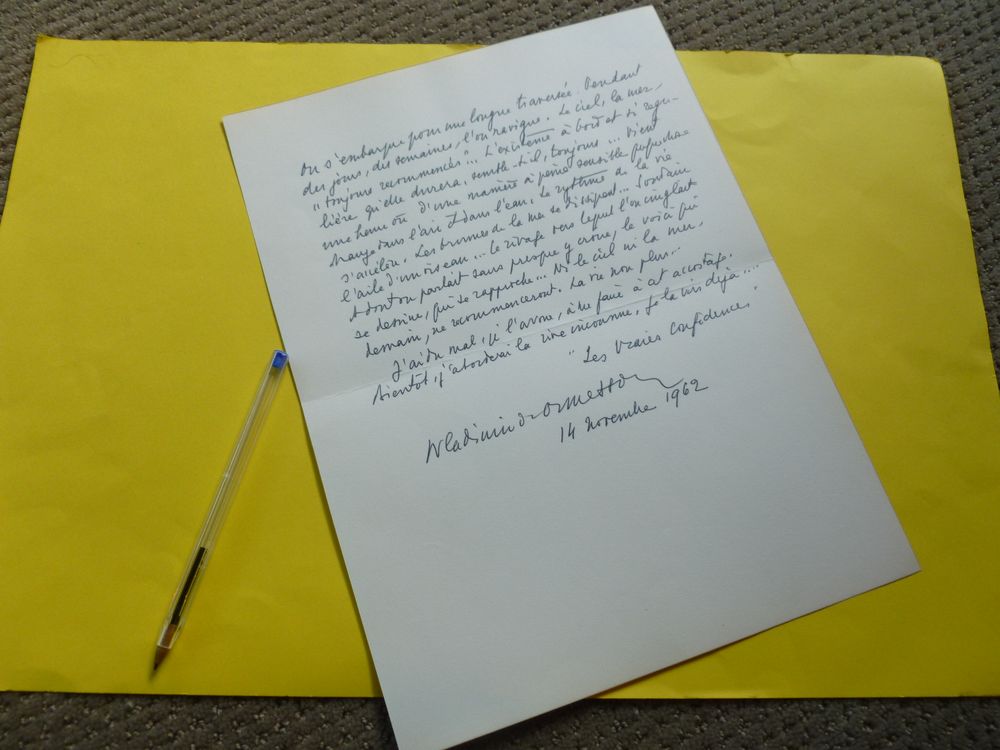 On s'embarque pour une longue traversée. Pendant
des jours, des semaines, l'on navigue. Le ciel, la mer,
"toujours recommencés"... L'existence à bord est si régu-
lière qu'elle durera, semble-t-il, toujours... Vient
une heure où d'une manière à peine sensible quelque chose
change dans l'air et dans l'eau. Le rythme de la vie
s'accélère. Les brumes de la mer se dissipent... Soudain
l'aile d'un oiseau... Le rivage vers lequel l'on cinglait
et dont on parlait sans presque y croire, le voici qui
se dessine, qui se rapproche... Ni le ciel ni la mer,
demain, ne recommenceront. La vie non plus...
J'ai du mal, je l'avoue, à me faire à cet accostage.
Bientôt, j'aborderai la rive inconnue. Je la vois déjà...
"Les Vraies Confidences"
Wladimir d'Ormesson
14 novembre 1962